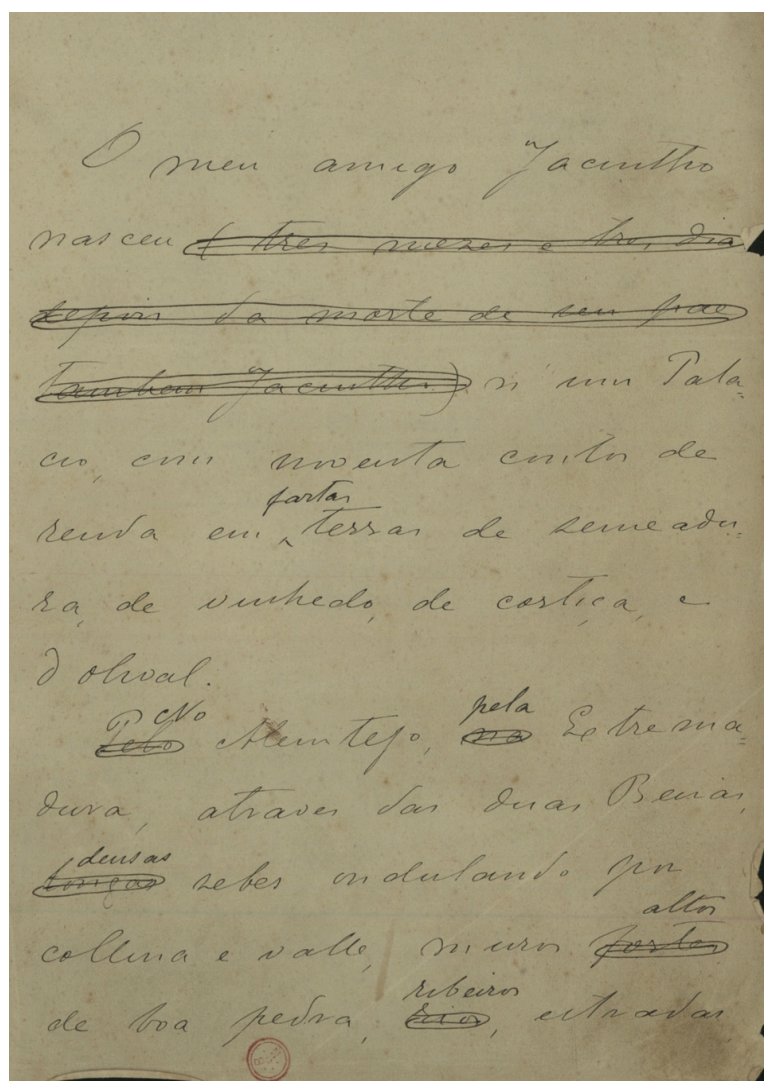 O meu amigo Jacintho
nasceu (tres mezes e tres dias
depois da morte de seu pae
tambem Jacintho) n'um Pala-
cio, com noventa contos de
fartas
renda em terras de semeadu-
ra, de vinhedo, de cortiça, e
d'olival.
No pela
Pelo Alemtejo, na Extrema-
dura, atravez das duas Beiras,
densas
longas sebes ondulando por
altos
collina e valle, muros fortes
ribeiros
de boa pedra, rios, estradas